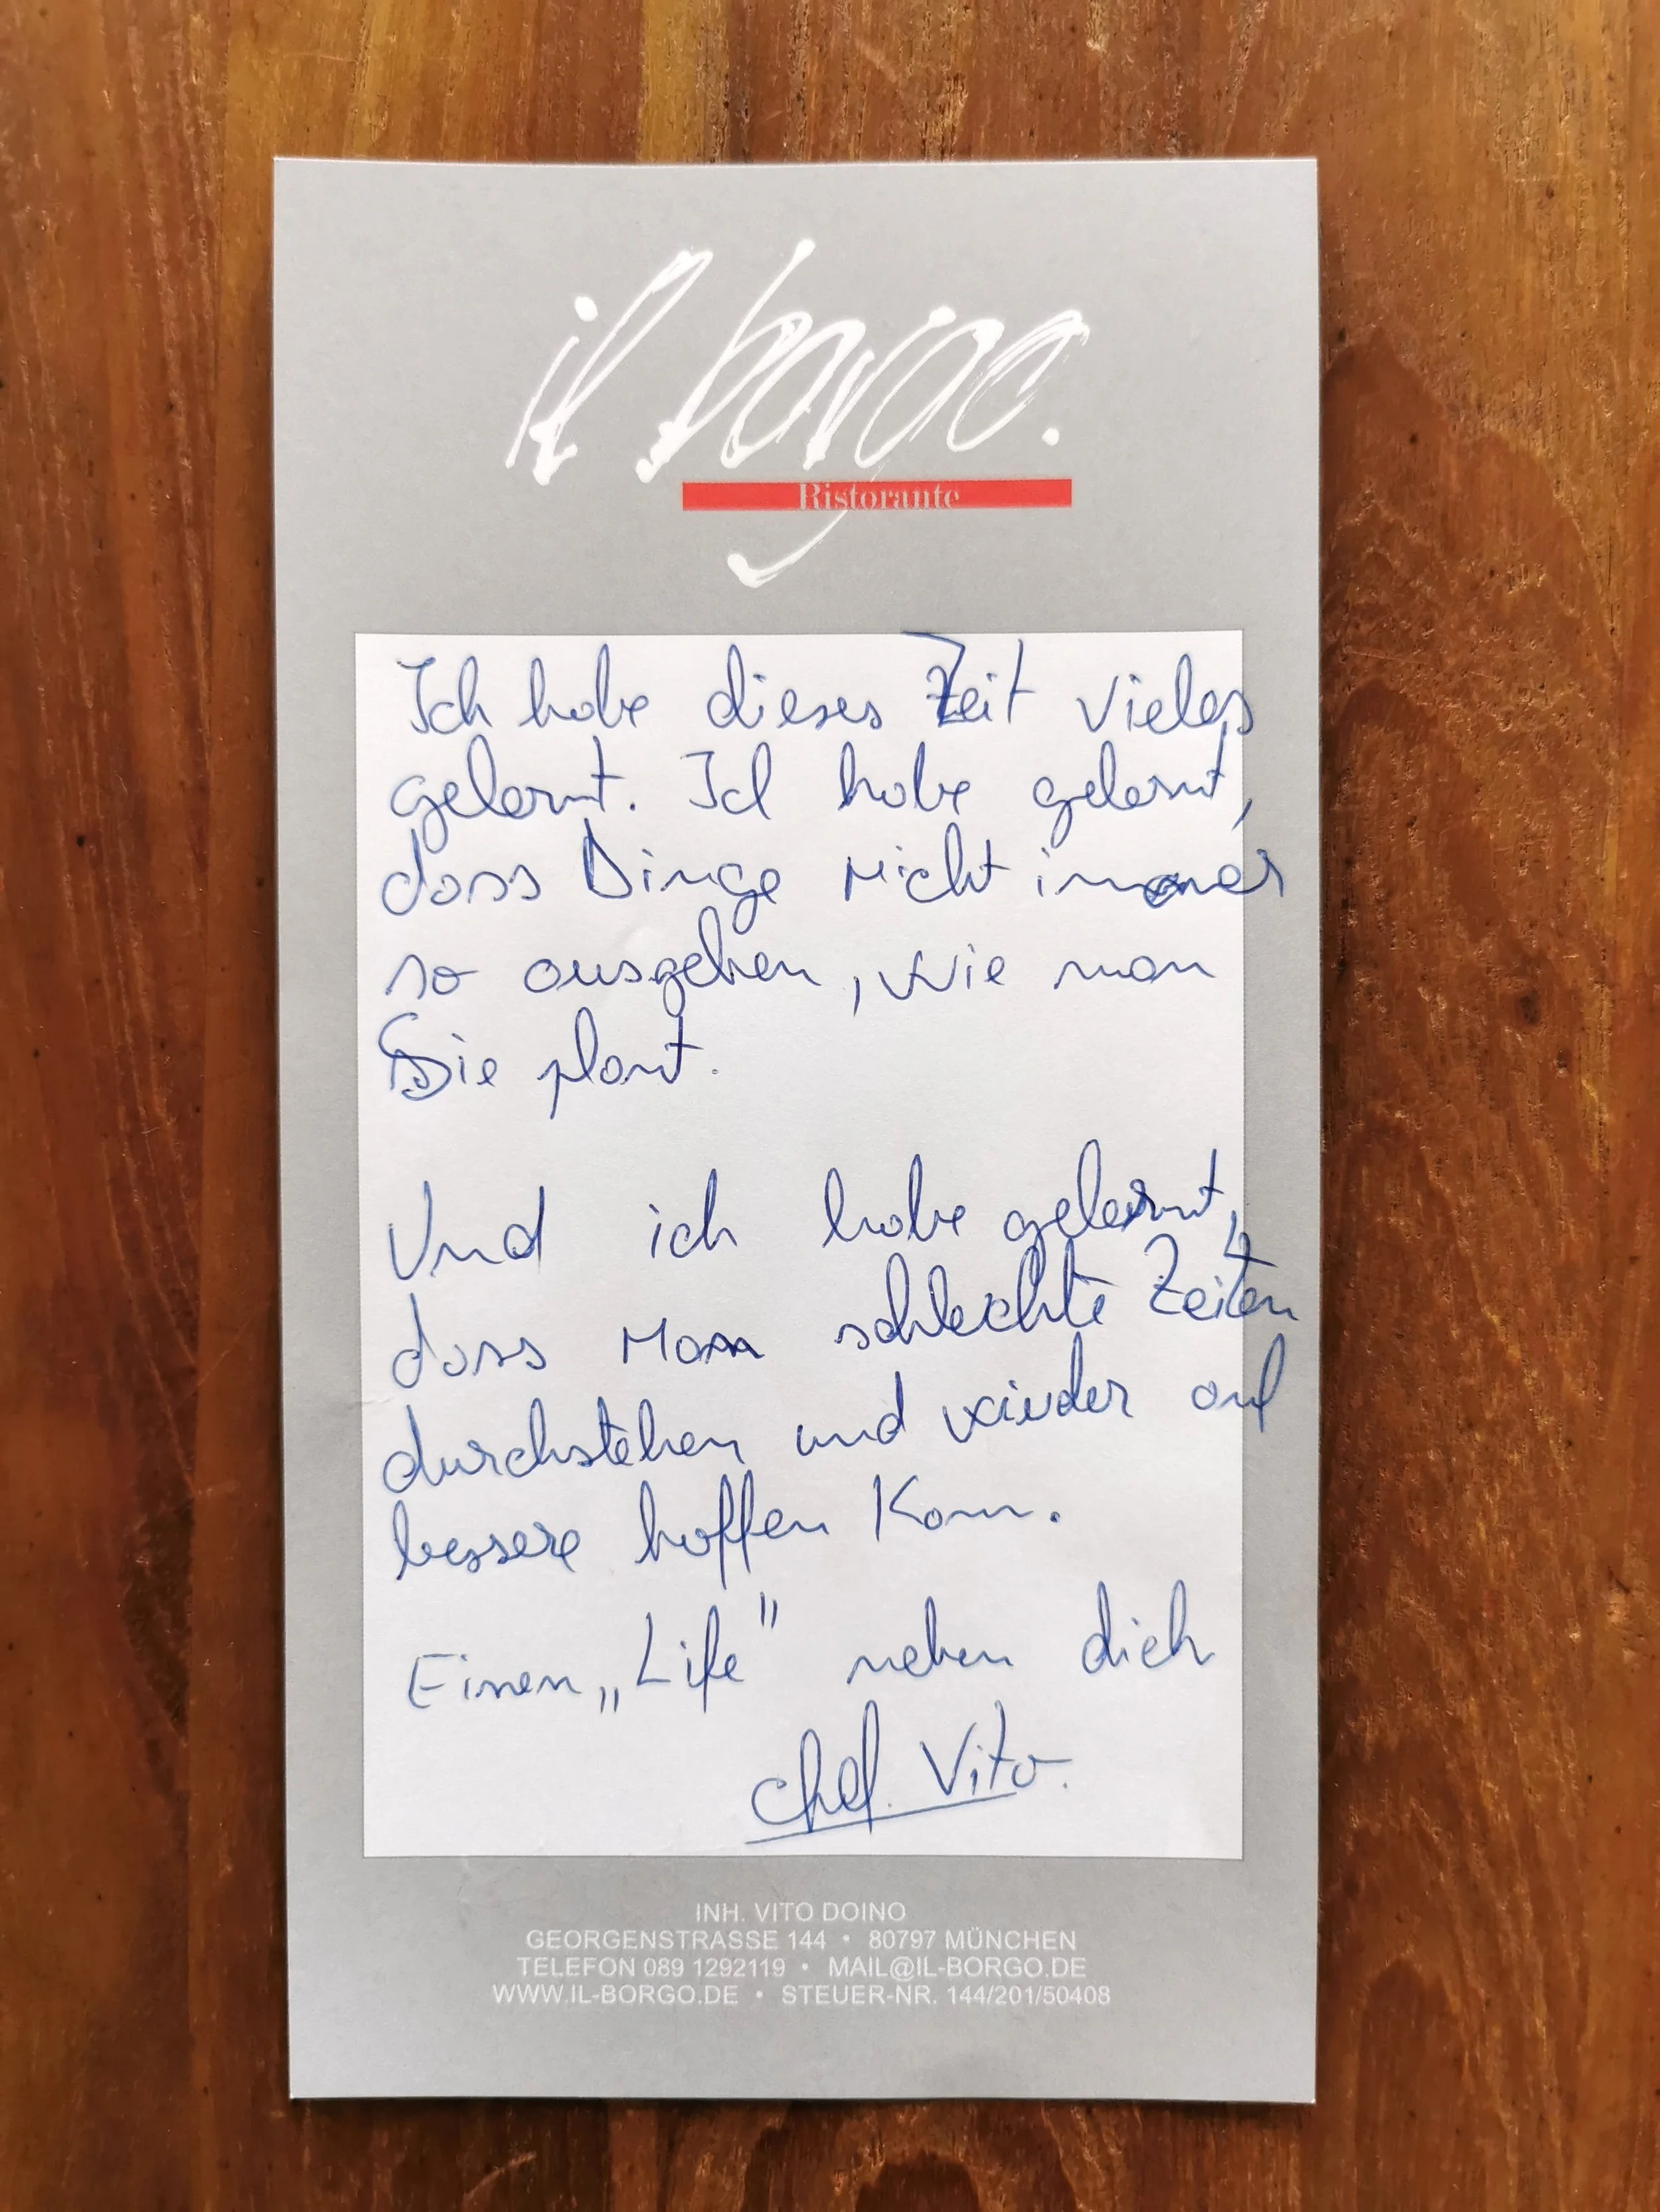 il borgo.
Ristorante
Ich habe dieses Zeit vieles
gelernt. Ich habe gelernt,
dass Dinge nicht immer
so ausgehen, wie man
Sie plant.
Und ich habe gelernt,
dass Man schlechte Zeiten
durchstehen und wieder auf
bessere hoffen Kann.
Einen „Life" neben dich
chef. Vito.
INH. VITO DOINO
GEORGENSTRASSE 144 • 80797 MÜNCHEN
TELEFON 089 1292119 • MAIL@IL-BORGO.DE
WWW.IL-BORGO.DE • STEUER-NR. 144/201/50408